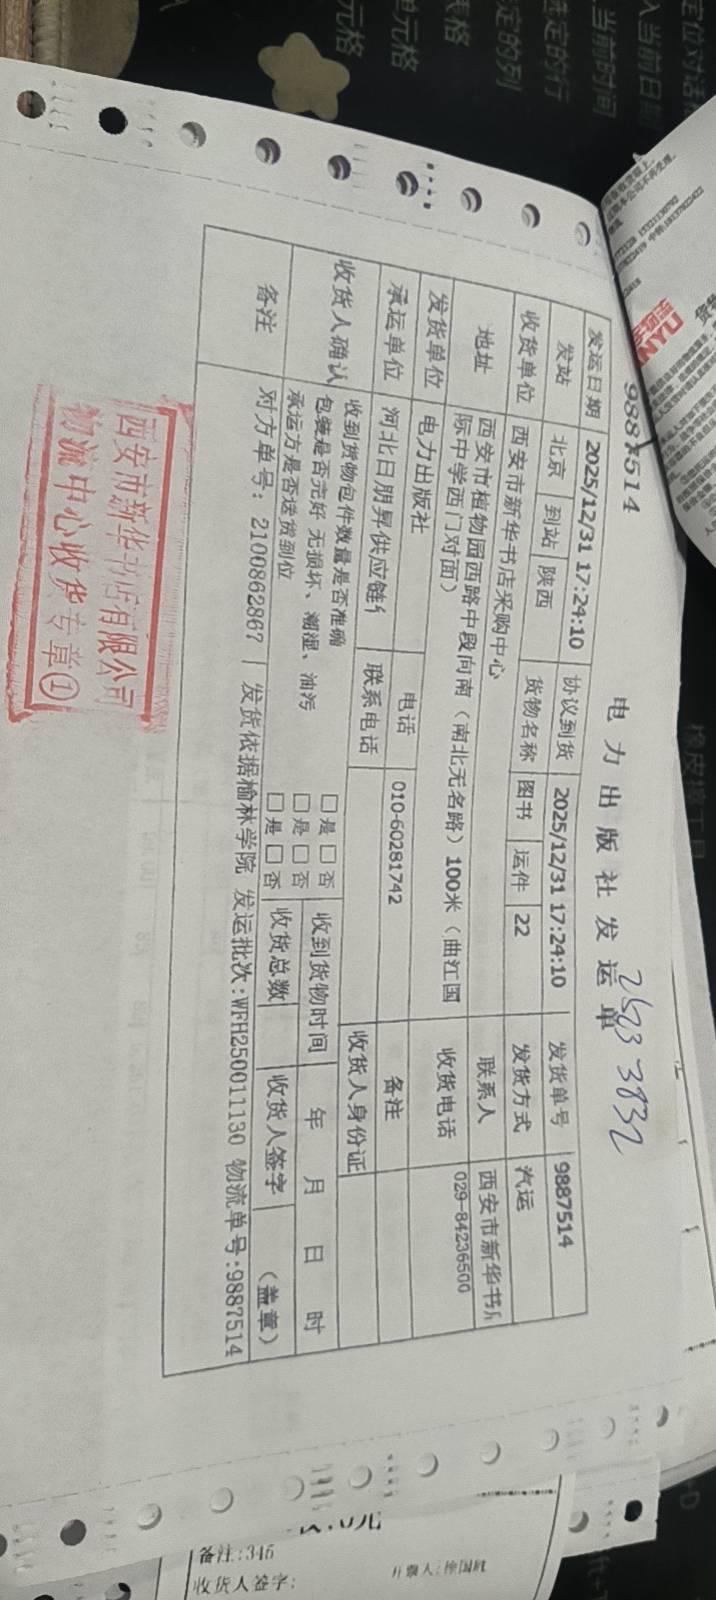 9887514
电力出版社发运单
2523 3832
发运日期 2025/12/31 17:24:10 协议到货 2025/12/31 17:24:10 发货单号 9887514
发站 北京 到站 陕西 货物名称 图书 运件 22 发货方式 汽运
收货单位 西安市新华书店采购中心 联系人 西安市新华书
地址 西安市植物园西路中段向南（南北无名路）100米（曲江国
际中学西门对面） 收货电话 029-84236500
发货单位 电力出版社 电话 010-60281742 备注
承运单位 河北日朋昇供应链 联系电话 收货人身份证
收货人确认 收到货物包件数量是否准确 □是 □否 收到货物时间 年 月 日 时
包装是否完好 无损坏、潮湿、油污 □是 □否
承运方是否送货到位 □是 □否 收货总数 收货人签字 （盖章）
备注 对方单号: 2100862867 | 发货依据榆林学院 发运批次:WFH250011130 物流单号:9887514
西安市新华书店有限公司
物流中心收货专章①
备注:346
收货人签字:
开票人:徐国胜
定位对话
入当前日期
当前时间
选定的行
定的列
表格
单元格
元格
橡皮擦工具